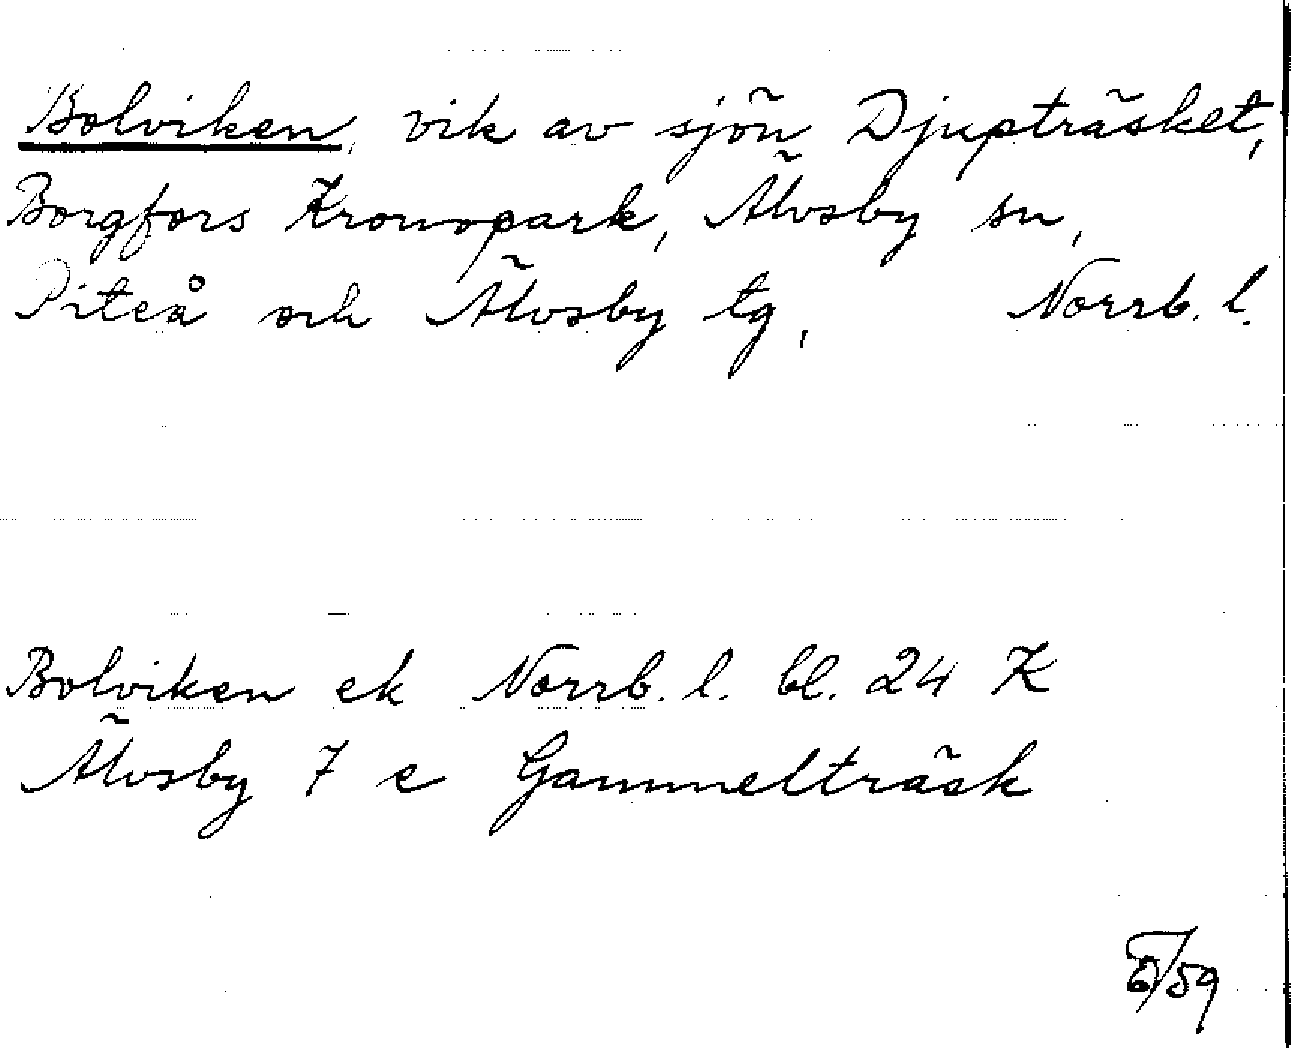 Bolviken, vik av sjön Djupträsket,
Borgfors Kronopark, Älvsby sn,
Piteå och Älvsby tg, Norrb. l.
Bolviken ek Norrb. l. bl. 24 K
Älvsby 7 e Gammelträsk
/59